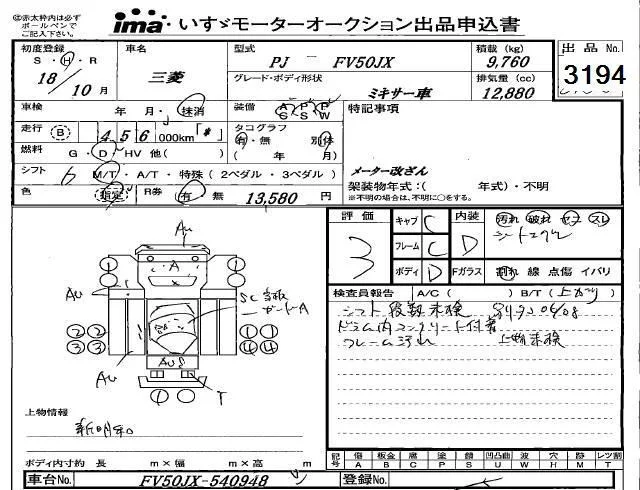 ◎赤太枠内は必ず
ボールペンで
ご記入下さい。
ima いすゞモーターオークション出品申込書
初度登録 車名 型式 積載 (kg) 出品 No.
S・H・R 18 10月 三菱 PJ - FV50JX 9,760 3194
グレード・ボディ形状 排気量 (cc)
ミキサー車 12,880
車検 年 月・抹消 装備 A/S P/S P/W 特記事項
走行 B 456 000km「*」 タコグラフ
有・無 別体
燃料 G・D・HV 他( ) ( 年 月) メーター改ざん
シフト 6 M/T・A/T・特殊(2ペダル・3ペダル) 架装物年式:( 年式)・不明
※不明の場合は、不明に○をする。
色 指定 R券 有・無 13,580 円
評価 3 キャブ C 内装 D 汚れ 破れ スレ
フレーム C
ボディ D Fガラス 割れ 線 点傷 イバリ
Au
A
① ①
Au
② ② ① ①
③ ③ ④ ④
Au
AUS
T
① ①
検査員報告 A/C( ) B/T(
シフト
ドラム内コンクリート付着
フレーム
上物情報
新明和
ボディ内寸約 長 m×幅 m×高 m
記号 傷 A 板金 B 腐 C 塗 P 錆 S 凹凸曲 U 波 W 穴 H 跡 M レツ割 T
車台No. FV50JX-540948 登録No.